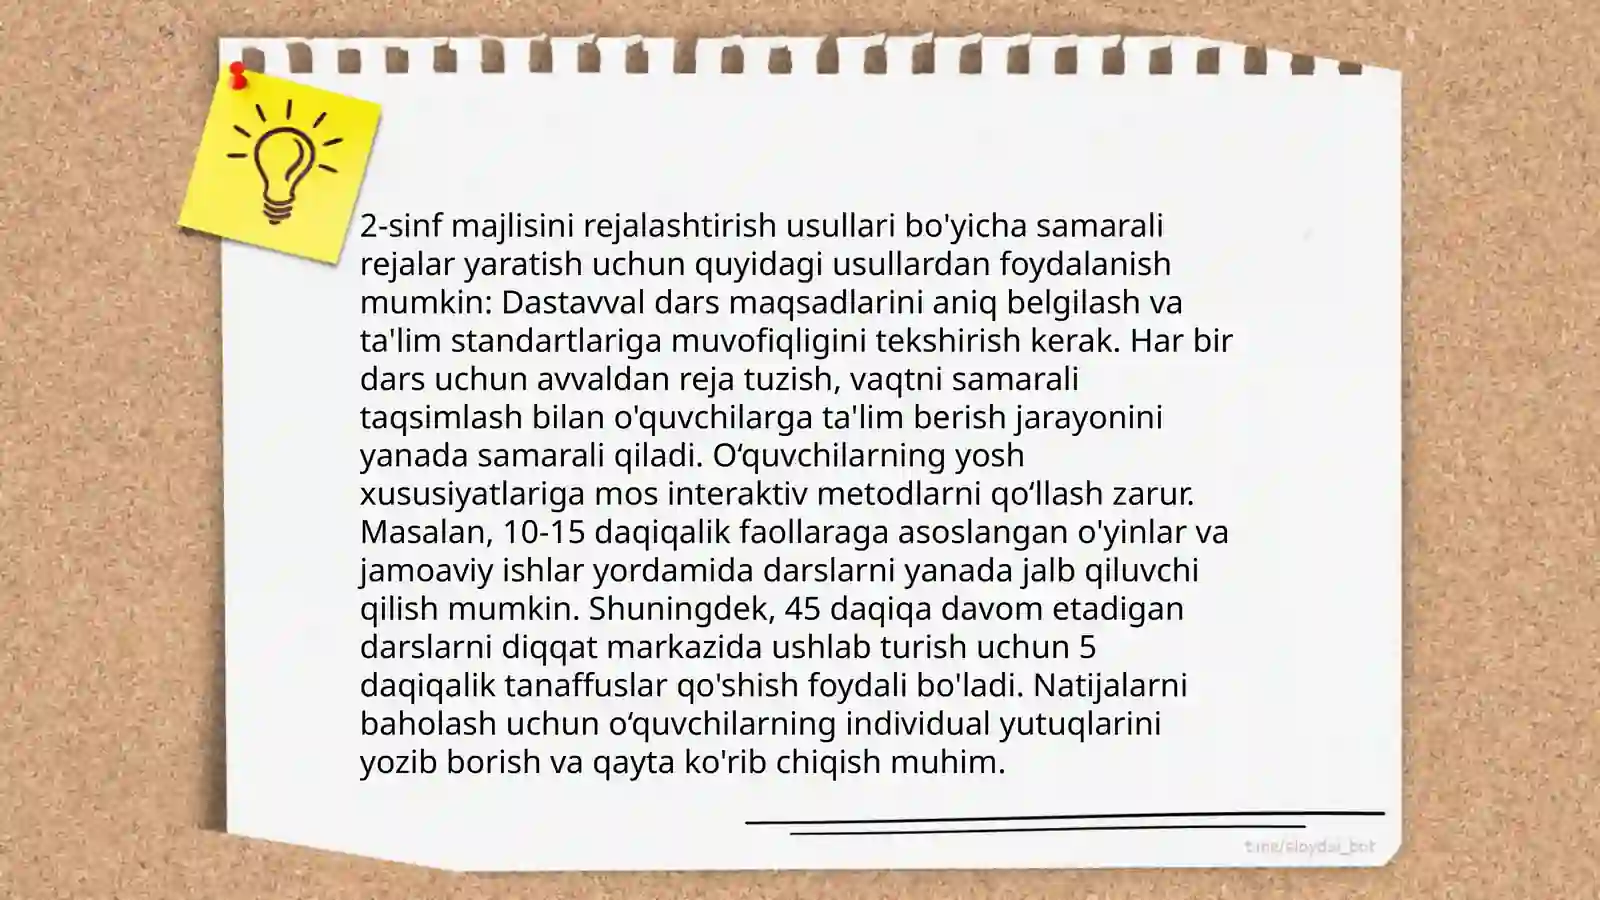 2-sinf majlisini rejalashtirish usullari bo'yicha samarali
rejalar yaratish uchun quyidagi usullardan foydalanish
mumkin: Dastavval dars maqsadlarini aniq belgilash va
ta'lim standartlariga muvofiqligini tekshirish kerak. Har bir
dars uchun avvaldan reja tuzish, vaqtni samarali
taqsimlash bilan o'quvchilarga ta'lim berish jarayonini
yanada samarali qiladi. O‘quvchilarning yosh
xususiyatlariga mos interaktiv metodlarni qo‘llash zarur.
Masalan, 10-15 daqiqalik faollaraga asoslangan o'yinlar va
jamoaviy ishlar yordamida darslarni yanada jalb qiluvchi
qilish mumkin. Shuningdek, 45 daqiqa davom etadigan
darslarni diqqat markazida ushlab turish uchun 5
daqiqalik tanaffuslar qo'shish foydali bo'ladi. Natijalarni
baholash uchun o‘quvchilarning individual yutuqlarini
yozib borish va qayta ko'rib chiqish muhim.